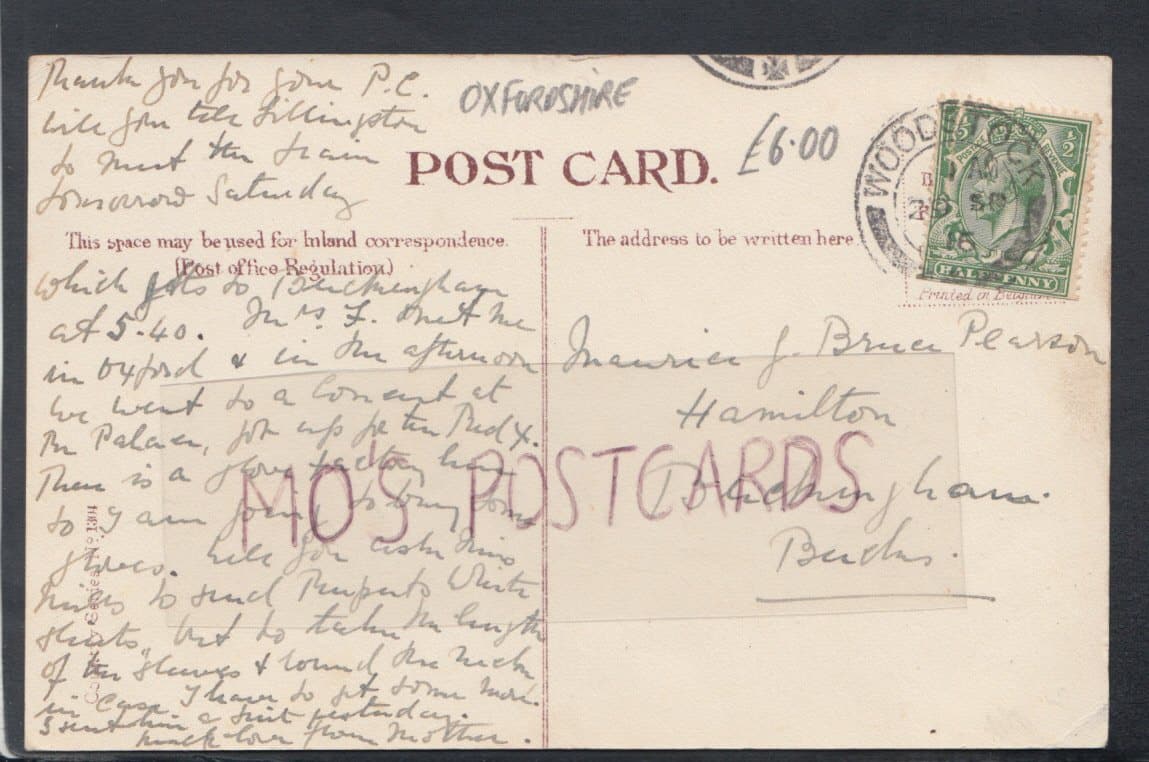 Thank you for your P.C.
Will you tell Fillingston
to meet the train
tomorrow Saturday
OXFORDSHIRE
£6.00
POST CARD.
WOODSTOCK
HALFPENNY
This space may be used for Inland correspondence.
(Post office Regulation.)
The address to be written here
Printed in Belgium
which gets to Buckingham
at 5.40. Mrs F. met me
in Oxford & in the afternoon
we went to a Concert at
the Palace, for the Red X.
There is a glove factory here
so I am going to buy some
gloves. Will you ask Miss
to send Ruperts White
shirts, but to take the length
of the sleeves & round the neck
in case I have to get some more.
I sent him a suit yesterday.
much love from Mother.
Maurice J. Bruce Pearson
Hamilton
Buckingham.
Bucks.
MO'S POSTCARDS
Series No 1304